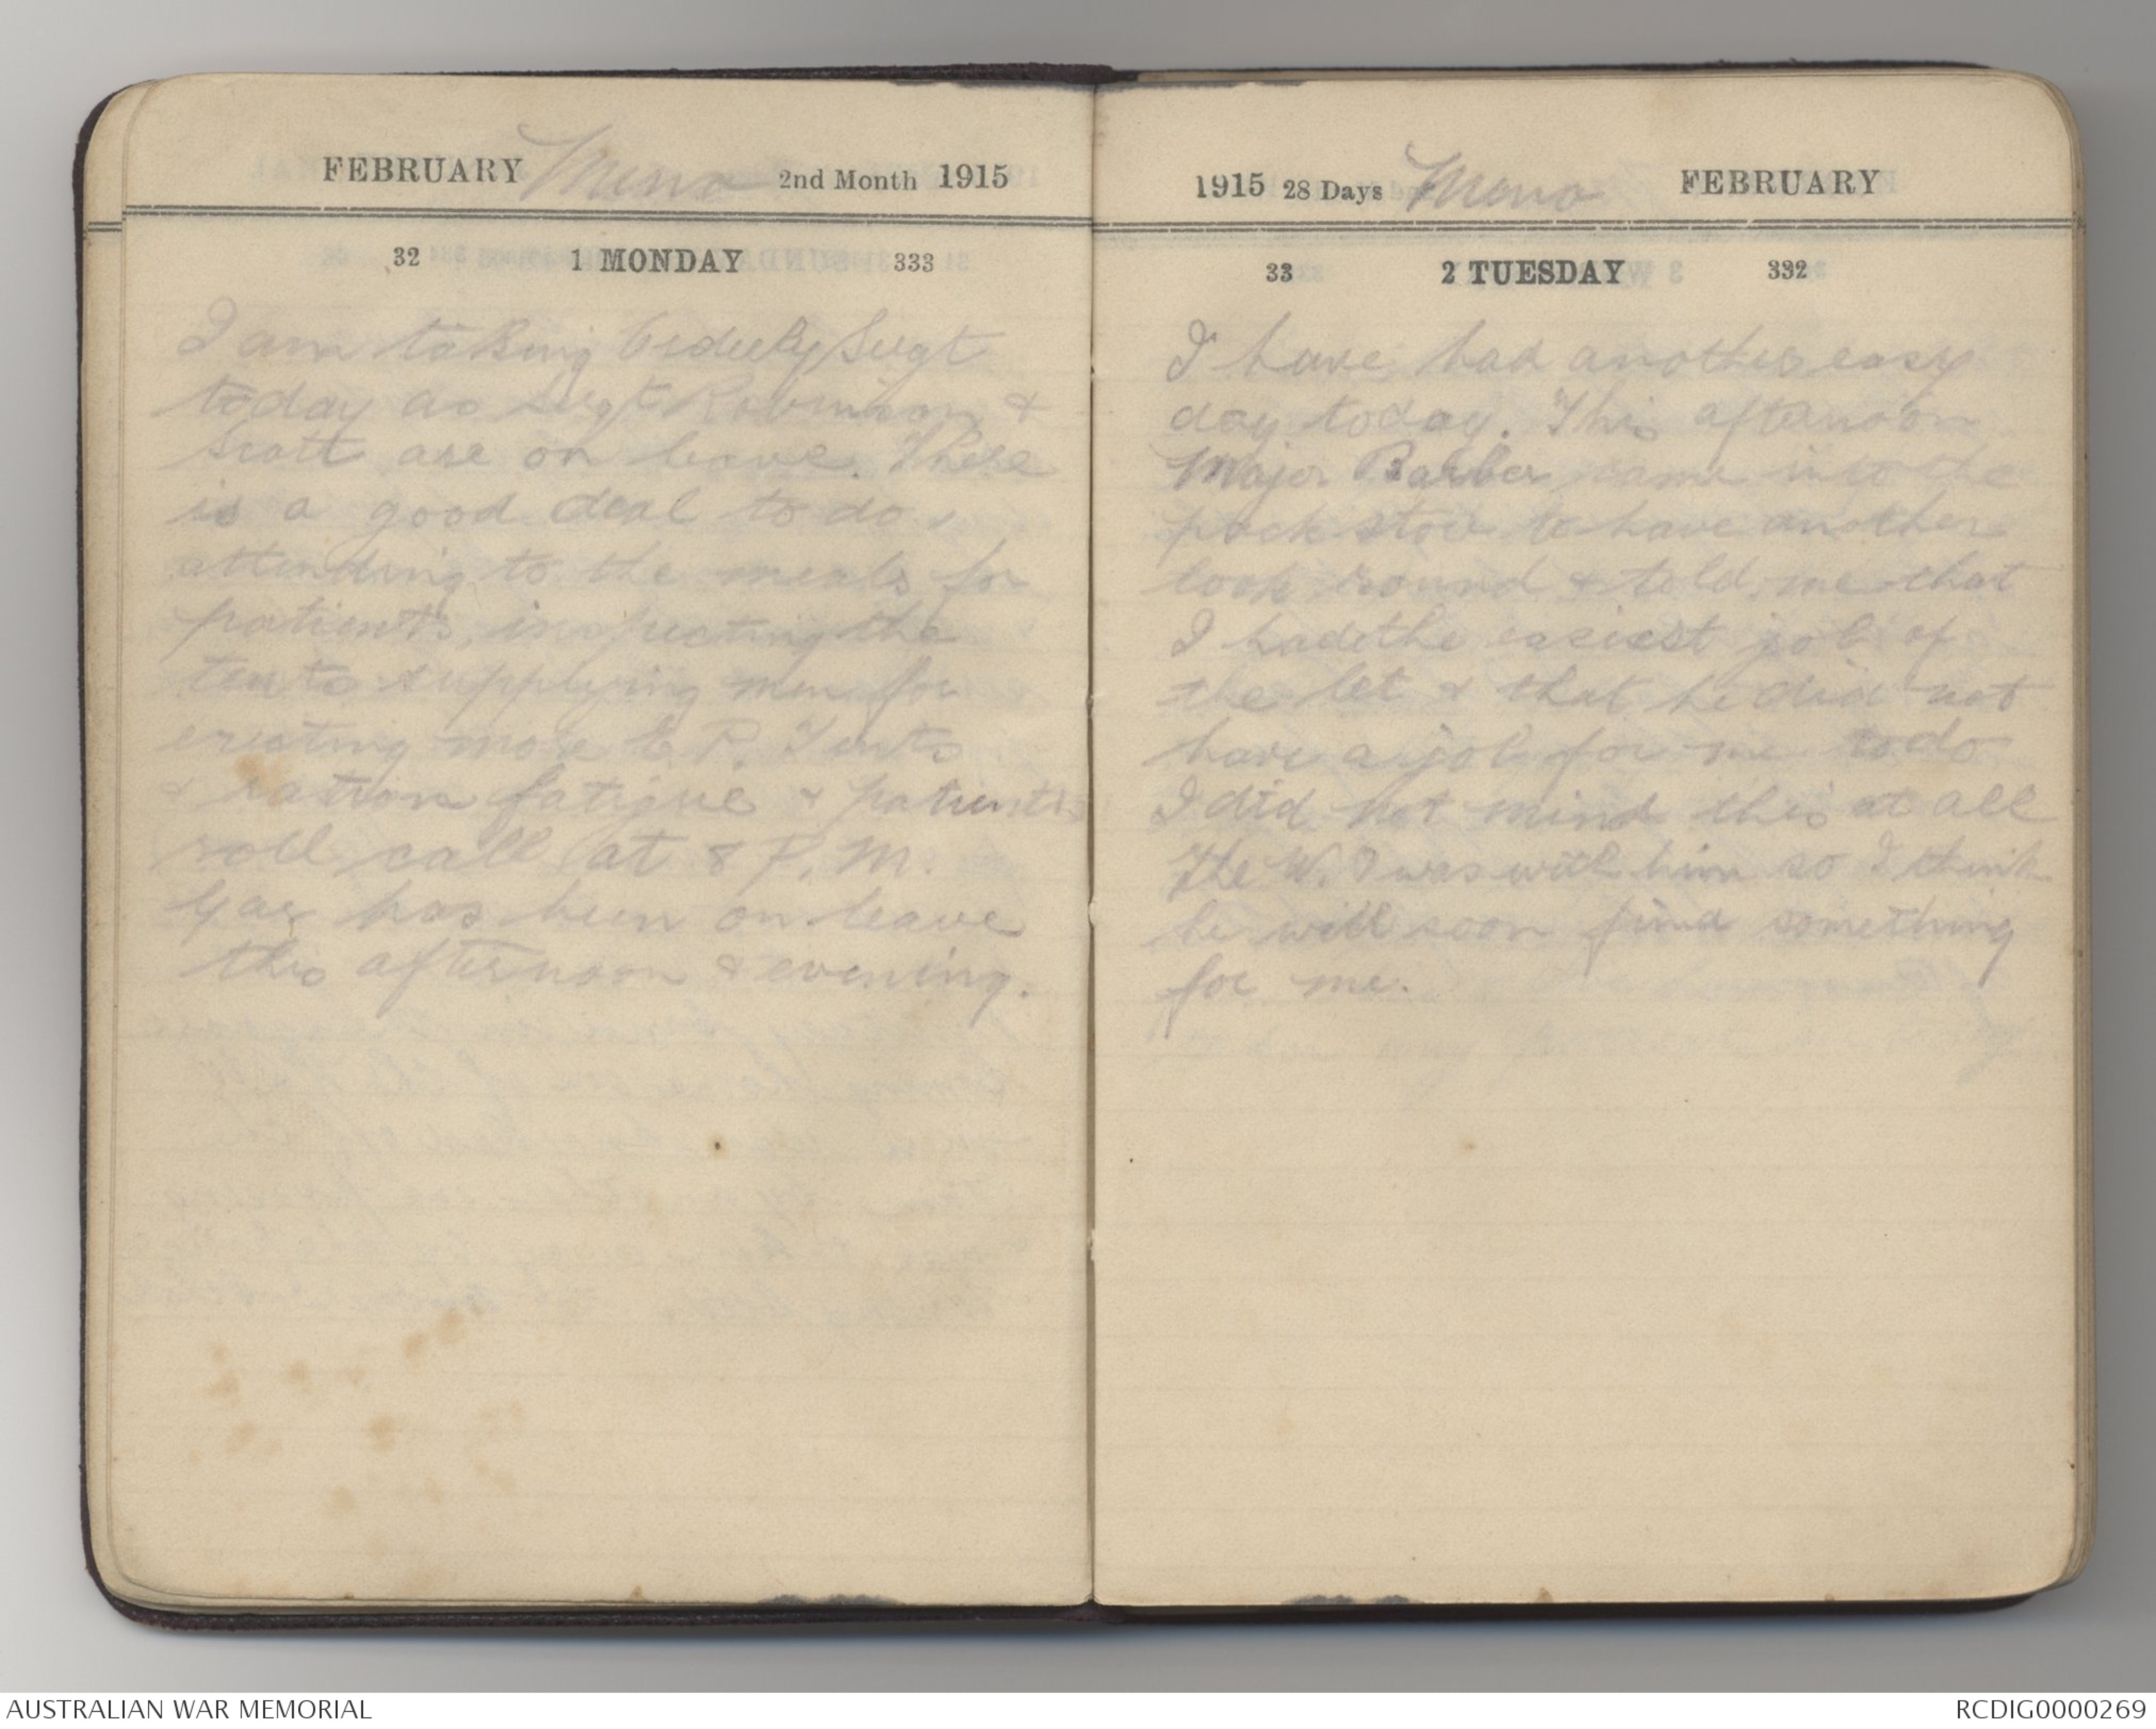 FEBRUARY Mena 2nd Month 1915
32 1 MONDAY 333
I am taking Orderly Sergt
today as Sergt Robinson &
Scott are on leave. There
is a good deal to do,
attending to the meals for
patients, inspecting the
tents supplying men for
erecting more E.P. Tents
& ration fatigue & patients
roll call at 8 P.M.
has been on leave
this afternoon & evening.
1915 28 Days Mena FEBRUARY
33 2 TUESDAY 332
I have had another easy
day today. This afternoon
Major Barber came into the
pack store to have another
look round & told me that
I had the easiest job of
the lot & that he did not
have a job for me to do
I did not mind this at all
The W.O was with him so I think
he will soon find something
for me.
AUSTRALIAN WAR MEMORIAL
RCDIG0000269